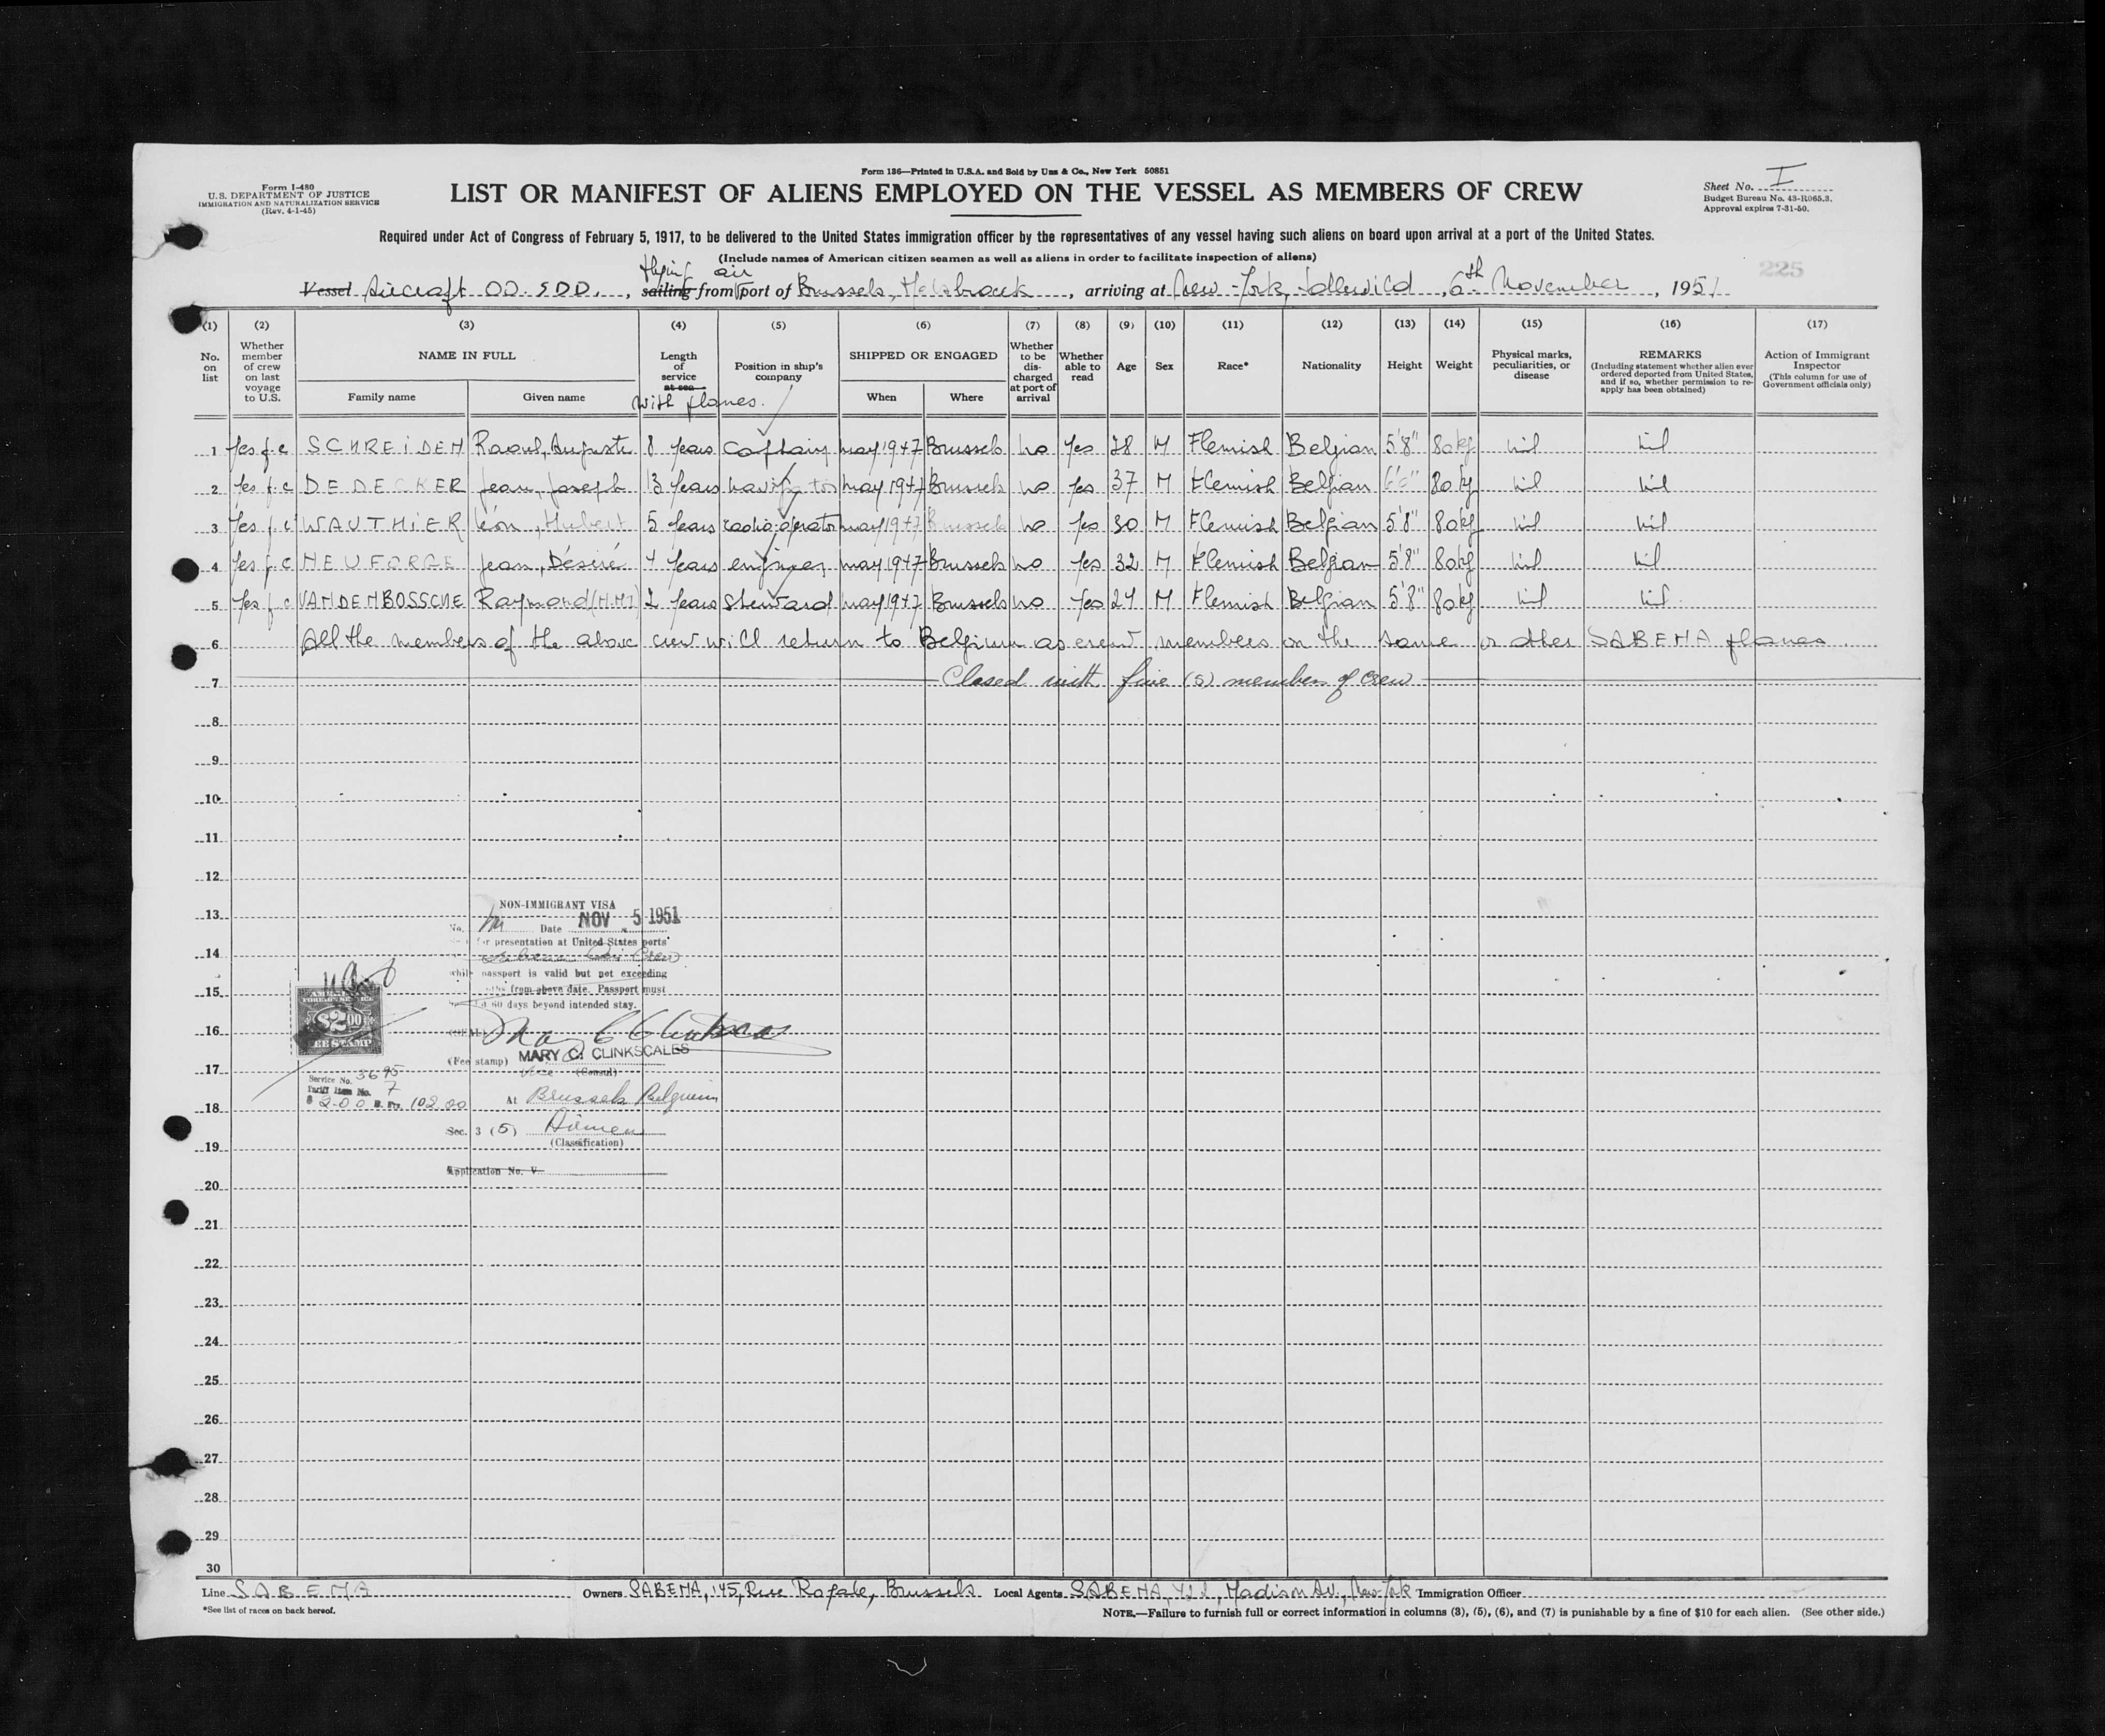 Form 136—Printed in U.S.A. and Sold by Unz & Co., New York 50851
Form I-480
U.S. DEPARTMENT OF JUSTICE
IMMIGRATION AND NATURALIZATION SERVICE
(Rev. 4-1-45)
LIST OR MANIFEST OF ALIENS EMPLOYED ON THE VESSEL AS MEMBERS OF CREW
Sheet No. I
Budget Bureau No. 43-R065.3.
Approval expires 7-31-50.
Required under Act of Congress of February 5, 1917, to be delivered to the United States immigration officer by the representatives of any vessel having such aliens on board upon arrival at a port of the United States.
(Include names of American citizen seamen as well as aliens in order to facilitate inspection of aliens)
225
flying air
Vessel Aircraft OO. SDD., sailing from port of Brussels, Melsbroek, arriving at New-York, Idlewild, 6th November, 1951
(1) (2) (3) (4) (5) (6) (7) (8) (9) (10) (11) (12) (13) (14) (15) (16) (17)
No. on list
Whether member of crew on last voyage to U.S.
NAME IN FULL
Family name
Given name
Length of service at sea
with planes.
Position in ship's company
SHIPPED OR ENGAGED
When
Where
Whether to be discharged at port of arrival
Whether able to read
Age
Sex
Race*
Nationality
Height
Weight
Physical marks, peculiarities, or disease
REMARKS
(Including statement whether alien ever ordered deported from United States, and if so, whether permission to reapply has been obtained)
Action of Immigrant Inspector
(This column for use of Government officials only)
1 Yes f.c SCHREIDEN Raoul, Auguste 8 years captain may 1947 Brussels no Yes 28 M Flemish Belgian 5'8" 80kg nil nil
2 Yes f.c DEDECKER Jean, Joseph 13 years may 1947 Brussels no Yes 37 M Flemish Belgian 6'0" 80kg nil nil
3 Yes f.c WAUTHIER Léon, Hubert 5 years radio-operator may 1947 Brussels no Yes 30 M Flemish Belgian 5'8" 80kg nil nil
4 Yes f.c NEUFORGE Jean, Désiré 4 years engineer may 1947 Brussels no Yes 32 M Flemish Belgian 5'8" 80kg nil nil
5 Yes f.c VANDENBOSSCHE Raymond 2 years steward may 1947 Brussels no Yes 24 M Flemish Belgian 5'8" 80kg nil nil
6 All the members of the above crew will return to Belgium as crew members on the same or other SABENA planes.
7 Closed with five (5) members of crew
8
9
10
11
12
13
14
15
16
17
18
19
20
21
22
23
24
25
26
27
28
29
30
NON-IMMIGRANT VISA
No. Date NOV 5 1951
for presentation at United States ports
Sabena Air Crew
while passport is valid but not exceeding
from above date. Passport must
60 days beyond intended stay.
FOREIGN SERVICE
$2.00
FEE STAMP
(SEAL) Mary C Clinkscales
(Fee stamp) MARY C. CLINKSCALES
Vice (Consul)
Service No. 3695
Tariff Item No. 7
$ 2.00 B. Frs. 102.00
At Brussels Belgium
Sec. 3 (5) Airmen
(Classification)
Application No. V
Line SABENA Owners SABENA, 145, Rue Royale, Brussels. Local Agents SABENA, 422, Madison Av., New-York Immigration Officer
*See list of races on back hereof.
NOTE.—Failure to furnish full or correct information in columns (3), (5), (6), and (7) is punishable by a fine of $10 for each alien. (See other side.)